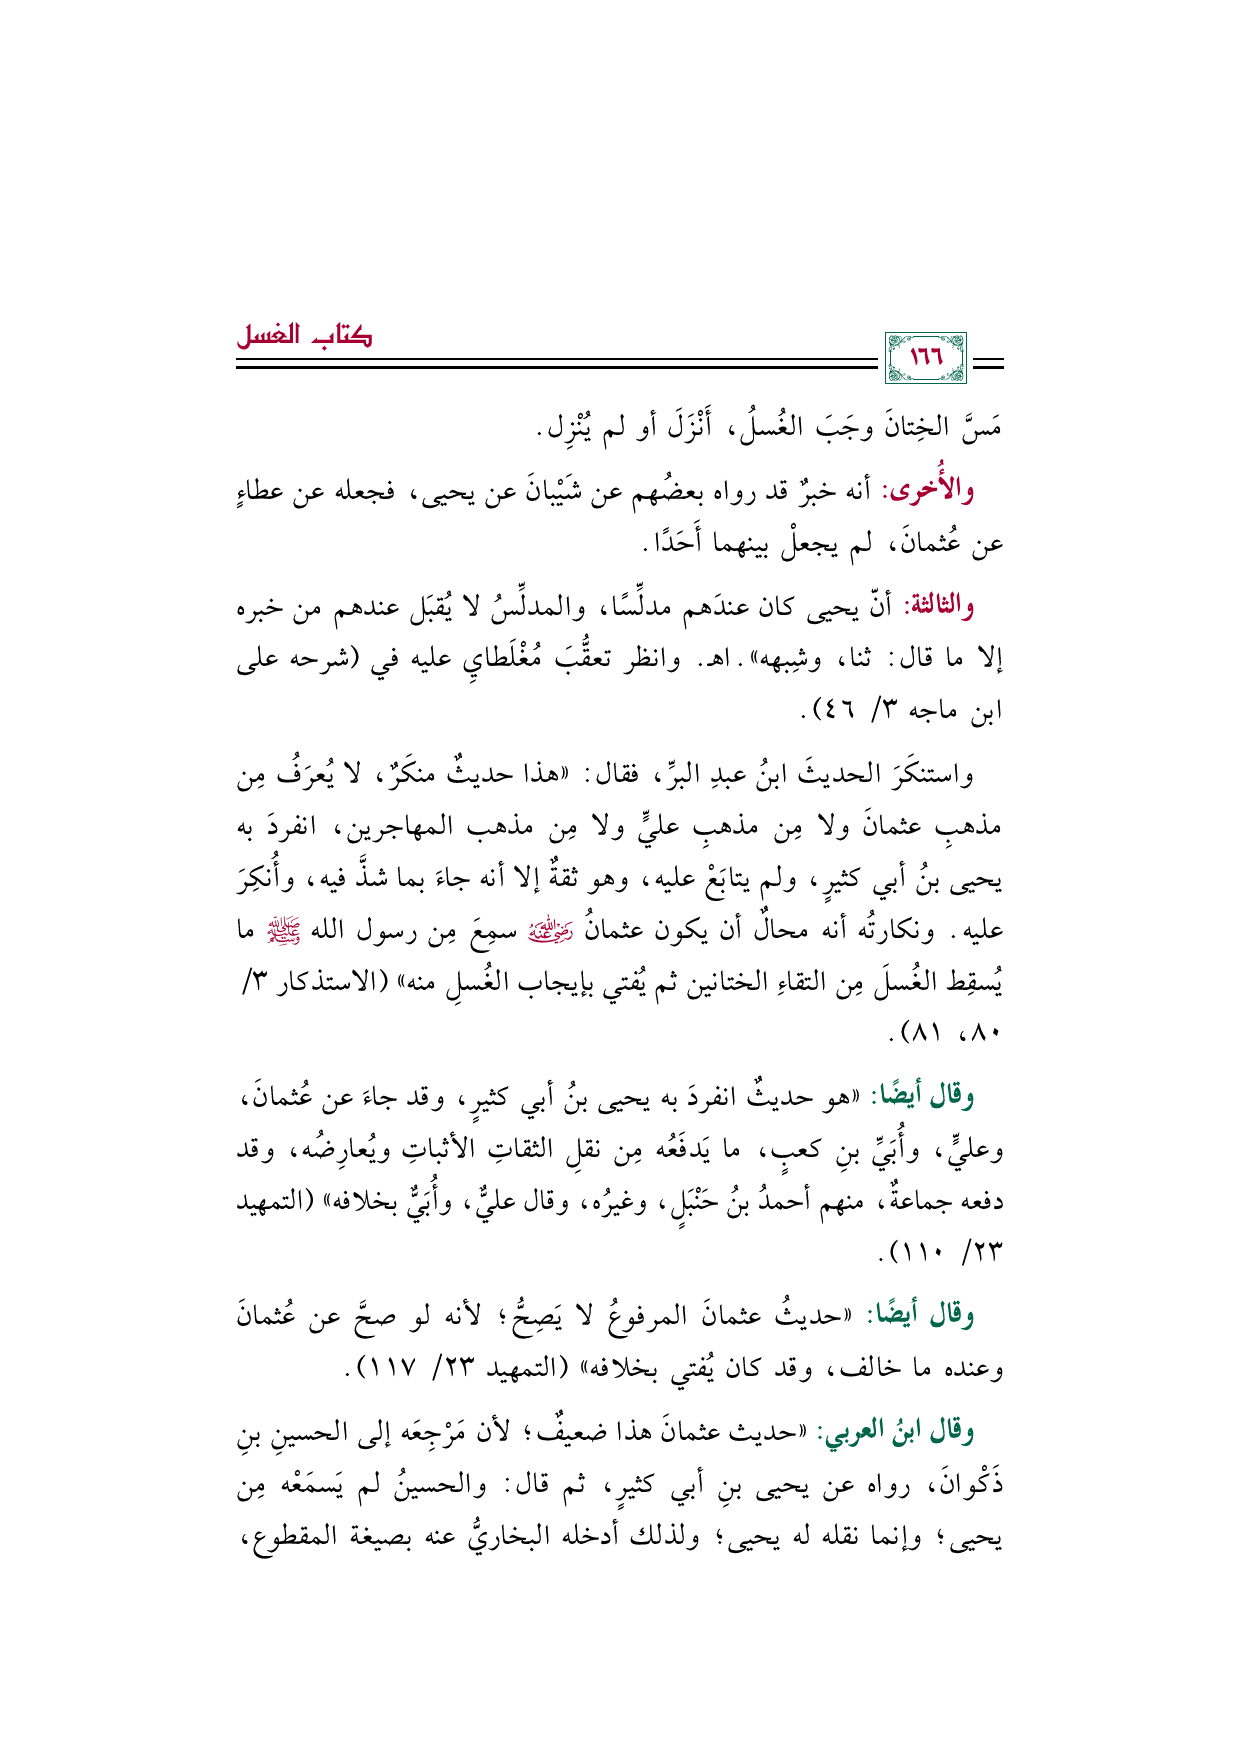 كتاب الغسل
١٦٦
مَسَّ الخِتانَ وجَبَ الغُسلُ، أَنْزَلَ أو لم يُنْزِل.
والأُخرى: أنه خبرٌ قد رواه بعضُهم عن شَيْبانَ عن يحيى، فجعله عن عطاءٍ
عن عُثمانَ، لم يجعلْ بينهما أَحَدًا.
والثالثة: أنّ يحيى كان عندَهم مدلِّسًا، والمدلِّسُ لا يُقبَل عندهم من خبره
إلا ما قال: ثنا، وشِبهه». اهـ. وانظر تعقُّبَ مُغْلَطايِ عليه في (شرحه على
ابن ماجه ٣/ ٤٦).
واستنكَرَ الحديثَ ابنُ عبدِ البرِّ، فقال: «هذا حديثٌ منكَرٌ، لا يُعرَفُ مِن
مذهبِ عثمانَ ولا مِن مذهبِ عليٍّ ولا مِن مذهب المهاجرين، انفردَ به
يحيى بنُ أبي كثيرٍ، ولم يتابَعْ عليه، وهو ثقةٌ إلا أنه جاءَ بما شذَّ فيه، وأُنكِرَ
عليه. ونكارتُه أنه محالٌ أن يكون عثمانُ رَضِيَ اللهُ عَنْهُ سمِعَ مِن رسول الله ﷺ ما
يُسقِط الغُسلَ مِن التقاءِ الختانين ثم يُفتي بإيجاب الغُسلِ منه» (الاستذكار ٣/
٨٠، ٨١).
وقال أيضًا: «هو حديثٌ انفردَ به يحيى بنُ أبي كثيرٍ، وقد جاءَ عن عُثمانَ،
وعليٍّ، وأُبَيِّ بنِ كعبٍ، ما يَدفَعُه مِن نقلِ الثقاتِ الأثباتِ ويُعارِضُه، وقد
دفعه جماعةٌ، منهم أحمدُ بنُ حَنْبَلٍ، وغيرُه، وقال عليٌّ، وأُبَيٌّ بخلافه» (التمهيد
٢٣/ ١١٠).
وقال أيضًا: «حديثُ عثمانَ المرفوعُ لا يَصِحُّ؛ لأنه لو صحَّ عن عُثمانَ
وعنده ما خالف، وقد كان يُفتي بخلافه» (التمهيد ٢٣/ ١١٧).
وقال ابنُ العربي: «حديث عثمانَ هذا ضعيفٌ؛ لأن مَرْجِعَه إلى الحسينِ بنِ
ذَكْوانَ، رواه عن يحيى بنِ أبي كثيرٍ، ثم قال: والحسينُ لم يَسمَعْه مِن
يحيى؛ وإنما نقله له يحيى؛ ولذلك أدخله البخاريُّ عنه بصيغة المقطوع،